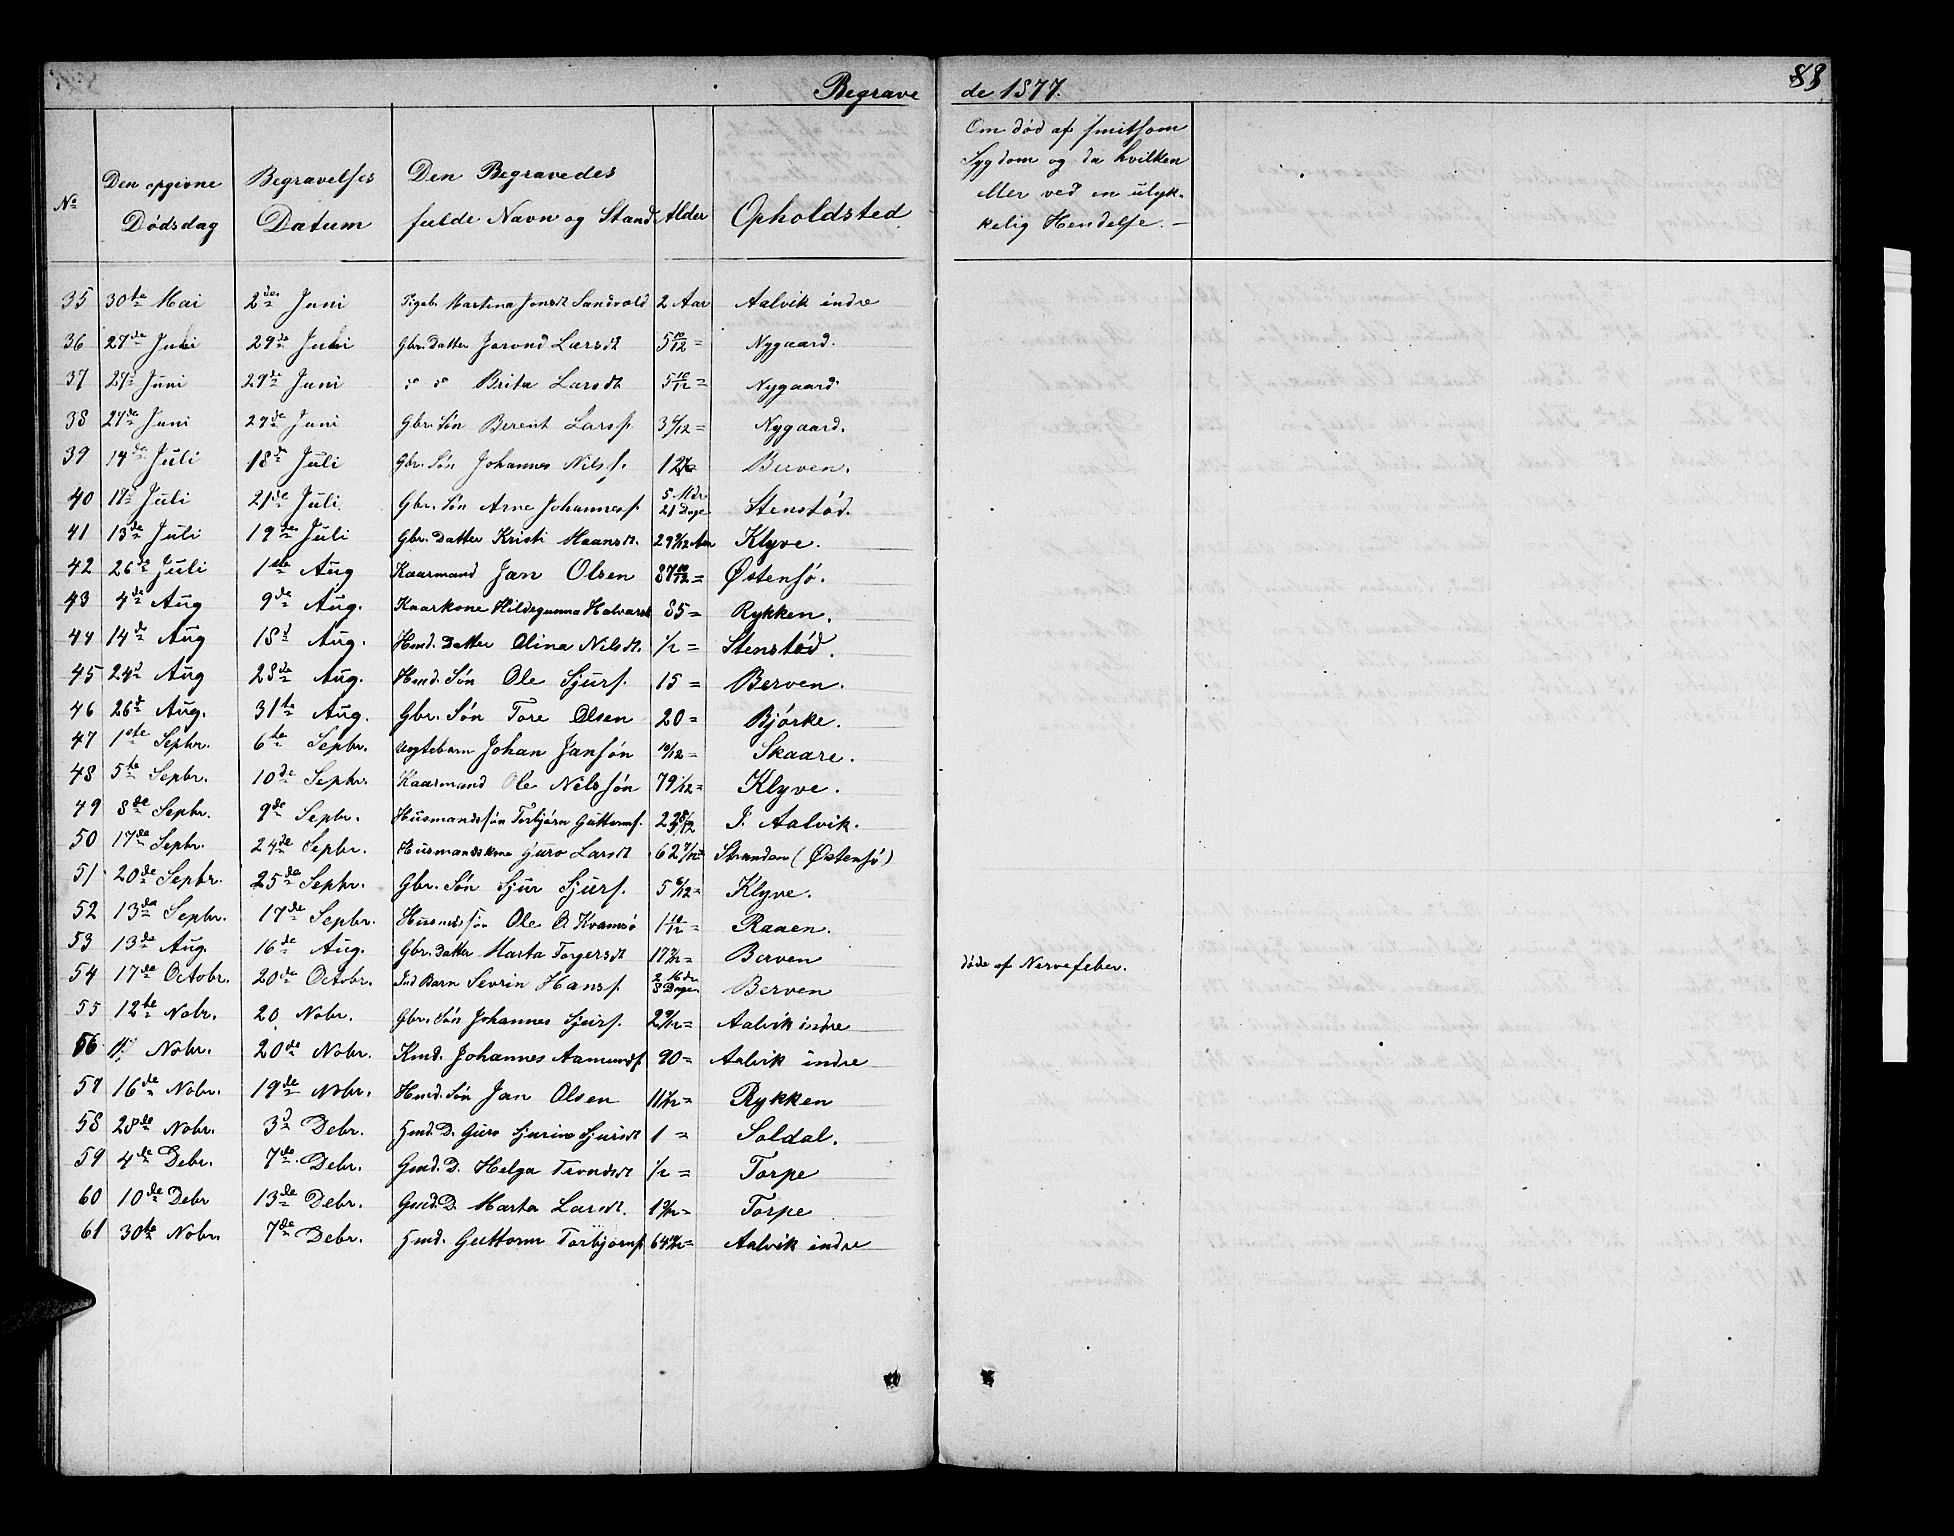 Begravede 1877.
83
No
Den opgivne Dødsdag
Begravelses Datum
Den Begravedes fulde Navn og Stand
Alder
Opholdsted
Om død af smitsom
Sygdom og da hvilken
eller ved en ulyk-
kelig Hendelse. –
35 30te Mai 2den Juni Pigeb. Martina Jonsdt Sandvold 2 Aar Aalvik indre
36 27de Juni 29de Juni Gbr. Datter Jorond Larsdt 5 10/12 = Nygaard.
37 27d Juni 29de Juni do do Brita Larsdt 5 10/12 = Nygaard.
38 27de Juni 29de Juni Gbr. Søn Berent Larss. 3 6/12 = Nygaard.
39 14de Juli 18de Juli Gbr. Søn Johannes Nilss. Berven.
40 17d Juli 21de Juli Gbr. Søn Arne Johanness. 5 Mdr 21 Dage Stenstød.
41 13de Juli 19de Juli Gbr. Datter Kristi Haansdt. 29 9/12 Aar Klyve.
42 26de Juli 1ste Aug Kaarmand Jan Olsen 87 10/12 = Østensø.
43 4de Aug 9de Aug. Kaarkone Hildegunna Halvarsdt 85 = Rykken.
44 14de Aug 18d Aug. Hmd. Datter Olina Nilsdt. 1/2 = Stenstød.
45 24d Aug 28de Aug. Hmd. Søn Ole Sjurs. 15 = Berven.
46 26d Aug. 31te Aug. Gbr. Søn Tore Olsen 20 = Bjørke.
47 1ste Sepbr. 6te Sepbr. uægtebarn Johan Jansøn 10/12 = Skaare.
48 5te Sepbr. 10de Sepbr. Kaarmand Ole Nilssøn 79 1/12 = Klyve.
49 8de Sepbr. 9de Sepbr. Husmandssøn Torbjørn Guttorms. I. Aalvik.
50 17de Sepbr. 24de Sepbr. Husmandskone Guro Larsdt 62 7/12 = Stranden (Østensø)
51 20de Sepbr. 25de Sepbr. Gbr. Søn Sjur Sjurs. 5 6/12 = Klyve.
52 13de Sepbr. 17de Sepbr. Husmdssøn Ole O. Kvamsø 1 10/12 = Raaen.
53 13de Aug. 16de Aug. Gbr. Datter Marta Torgersdt Berven døde af Nervefeber.
54 17de Octobr. 20de Octobr. Ind Barn Sevrin Hanss. 2 Mdr 8 Dage. Berven
55 12te Nobr. 20 Nobr. Gbr. Søn Johannes Sjurs. Aalvik indre
56 Nobr. 20de Nobr. Kmd. Johannes Aamunds. 90 = Aalvik indre
57 16de Nobr. 19de Nobr. Hmd. Søn Jan Olsen Rykken
58 28de Nobr. 3d Debr. Hmd. D. Guro Sjurina Sjursdt 1 = Soldal.
59 4de Debr. 7de Debr. Gmd. D. Helga Trondsdt 1/2 = Torpe
60 10de Debr 13de Debr. Gmd. D. Marta Larsdt. Torpe
61 30te Nobr. 7de Debr. Hmd. Guttorm Torbjørns. Aalvik indre